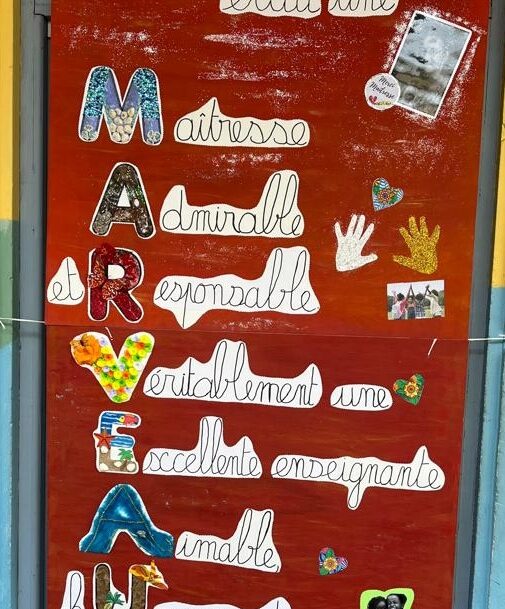 était une
Maîtresse
Merci Maîtresse
Admirable
et Responsable
Véritablement une
Excellente enseignante
Aimable